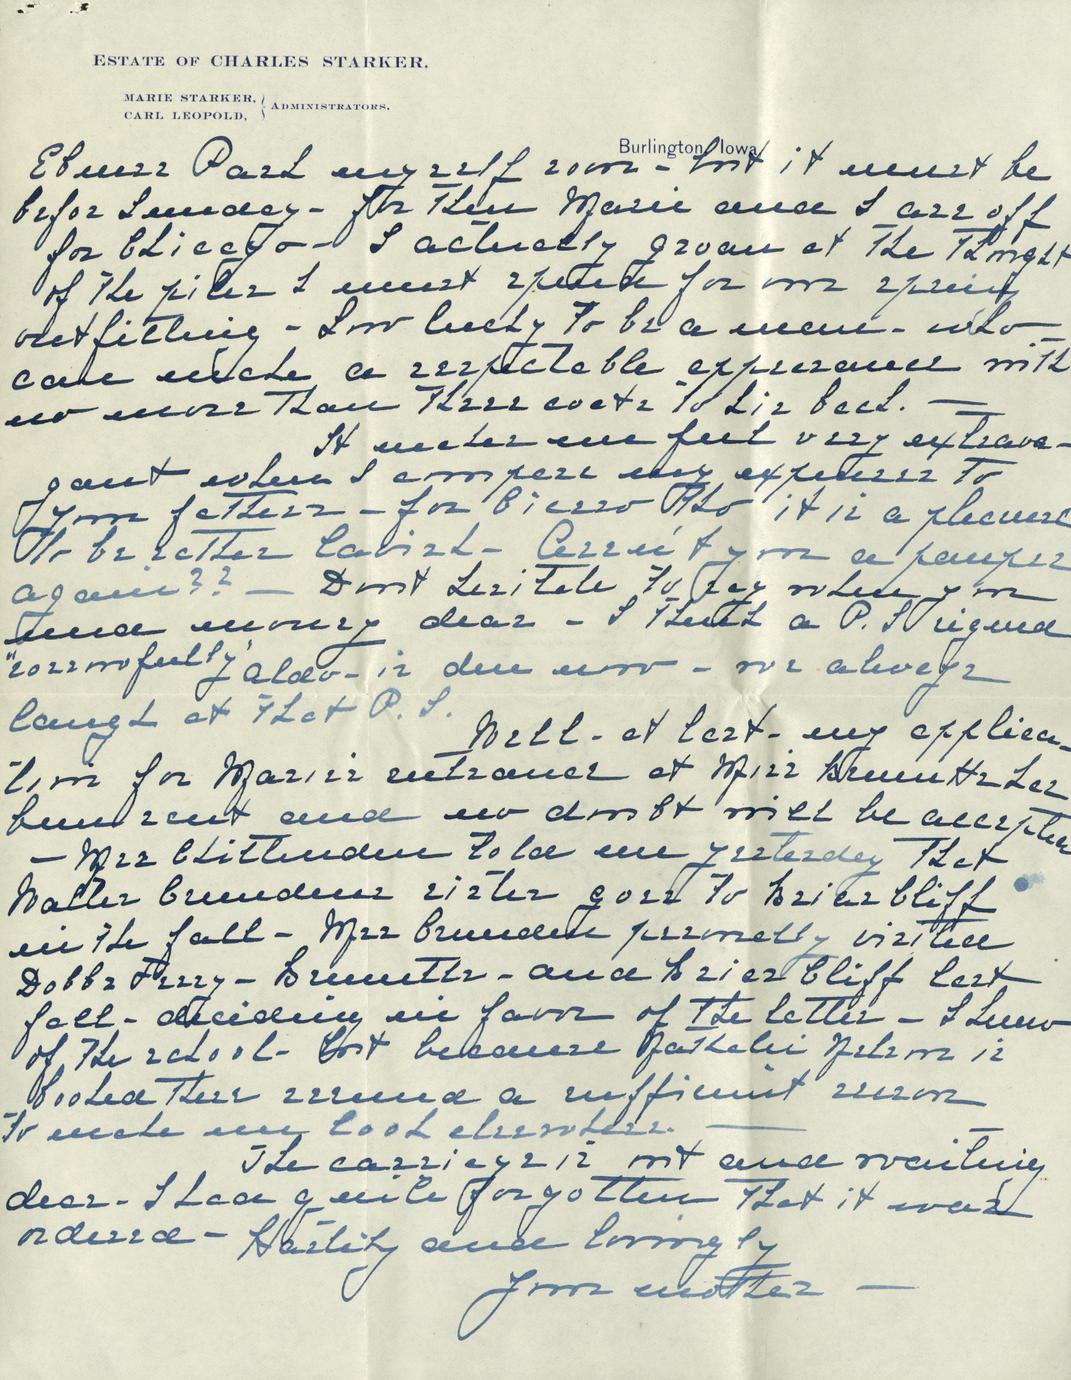 ESTATE OF CHARLES STARKER.
MARIE STARKER,
CARL LEOPOLD,
ADMINISTRATORS.
Burlington, Iowa
Park myself soon - but it must be
before Sunday - for then Marie and I are off
for Chicago - I actually groan at the thought
of the piles I must spend for our spring
outfitting - how lucky to be a man - who
can make a respectable appearance with
no more than three coats to his back. —
It makes me feel very extrava-
gant when I compare my expenses to
your fathers - for it is a pleasure
to be rather lavish - Aren't you a pauper
again?? — Dont hesitate to say when you
need money dear - I think a P.S signed
"sorrowfully" Aldo - is due now - we always
laugh at that P.S.
Well - at last - my applica-
tion for Maries entrance at Miss Bennetts has
been sent and no doubt will be accepted
- Mrs Chittenden told me yesterday that
Walter Crundens sister goes to Briar Cliff
in the fall - Mrs Crunden personally visited
Dobbs Ferry - Bennetts - and Briar Cliff last
fall - deciding in favor of the latter - I know
of the school - but because is
booked there seemed a sufficient reason
to make me look elsewhere. —
The carriage is out and waiting
dear - I had quite forgotten that it was
ordered - Hastily and lovingly
Your mother —